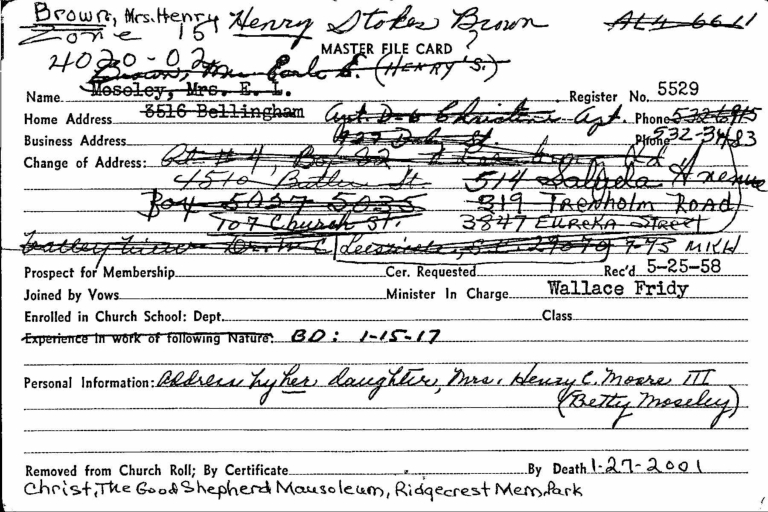 Brown, Mrs. Henry Henry Stokes Brown AL4-6611
Zone 15
MASTER FILE CARD
4020-02 Brown, Mrs. Earle E. (HENRY S.)
Name Moseley, Mrs. E. L. Register No. 5529
Home Address 3516 Bellingham Apt. D-6 Christine Apt. Phone
Business Address St. Phone 532-3483
Change of Address: Rt # 4, Box 32 Rd
4510 Butler St. 514 Saluda Avenue
Box 5027 5035 319 Trenholm Road
107 Church St. 3847 EUREKA STREET
Valley View Dr. W C Leesville, S.C. 29070 9-73 MKH
Prospect for Membership Cer. Requested Rec'd 5-25-58
Joined by Vows Minister In Charge Wallace Fridy
Enrolled in Church School: Dept. Class
Experience in work of following Nature: BD: 1-15-17
Personal Information: Address by her daughter, Mrs. Henry C. Moore III
(Betty Moseley)
Removed from Church Roll; By Certificate By Death 1-27-2001
Christ, The Good Shepherd Mausoleum, Ridgecrest Mem. Park